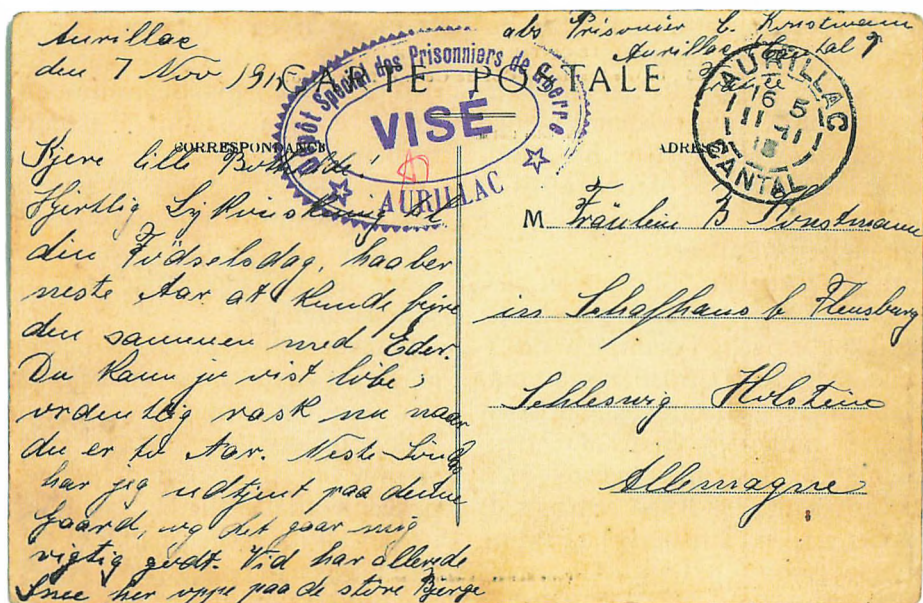 Aurillac
den 7 Nov. 191
abs Prisonnier C. Konstmann
Aurillac Cantal
CARTE POSTALE
Dépôt Spécial des Prisonniers de Guerre
VISÉ
AURILLAC
AURILLAC
16 5
11-11
CANTAL
CORRESPONDANCE
ADRESSE
Kjere lille
Hjertlig Lykønskning til
din Födselsdag, haaber
neste Aar at kunde fejre
den sammen med Eder.
Du kann jo vist löbe
ordentlig rask nu naar
du er to Aar. Neste
har jeg udtjent paa denne
Gaard, og det gaar mig
rigtig godt. Vid har allerede
Snee her oppe paa de store Bjerge
M Fräulein B Konstmann
in Schafhaus b Flensburg
Schleswig Holstein
Allemagne